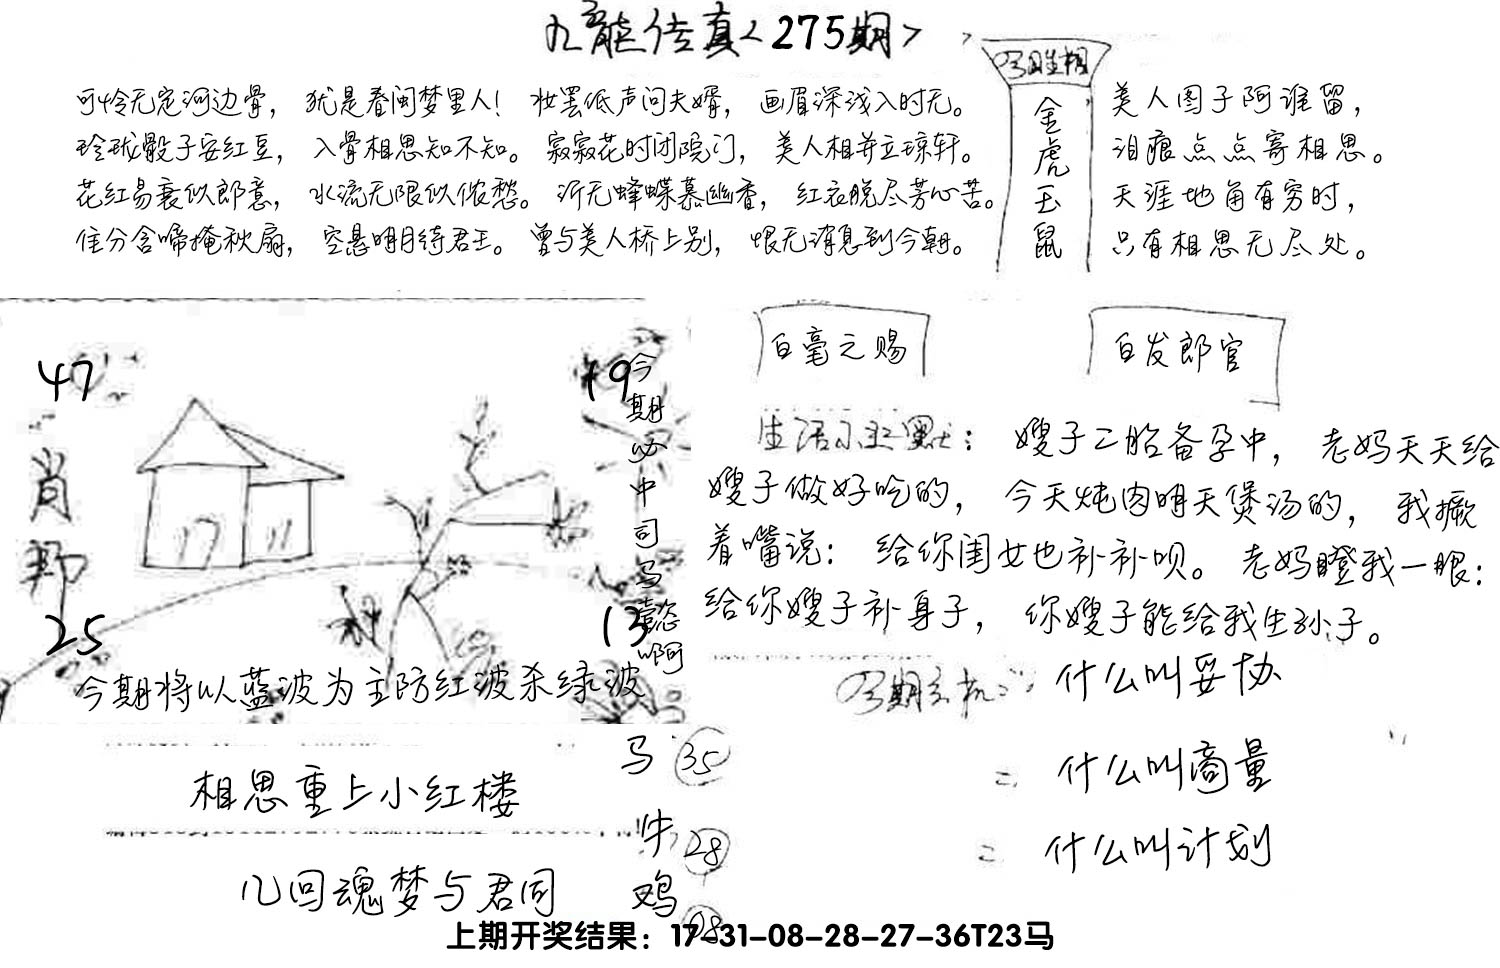 九龙传真<275期>
可怜无定河边骨，犹是春闺梦里人！妆罢低声问夫婿，画眉深浅入时无。
玲珑骰子安红豆，入骨相思知不知。寂寂花时闭院门，美人相并立琼轩。
花红易衰似郎意，水流无限似侬愁。沂无蜂蝶慕幽香，红衣脱尽芳心苦。
佳分含啼掩秋扇，空悬明月待君王。曾与美人桥上别，恨无消息到今朝。
金虎玉鼠
美人图子阿谁留，
泪痕点点寄相思。
天涯地角有穷时，
只有相思无尽处。
47
19
肖邦
25
13
今期必中司马懿啊
今期将以蓝波为主防红波杀绿波
白毫之赐
白发郎官
生活小幽默：嫂子二胎备孕中，老妈天天给
嫂子做好吃的，今天炖肉明天煲汤的，我撅
着嘴说：给你闺女也补补呗。老妈瞪我一眼：
给你嫂子补身子，你嫂子能给我生孙子。
什么叫妥协
二 什么叫商量
三 什么叫计划
相思重上小红楼
几回魂梦与君同
马 35
牛 28
鸡 08
上期开奖结果：17-31-08-28-27-36T23马